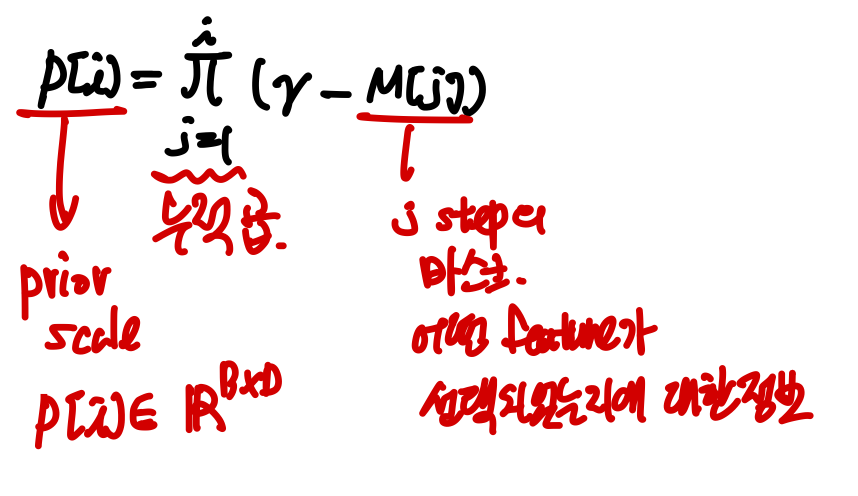 P[i] = ∏ (γ - M[j])
i
j=1
누적곱.
prior
scale
P[i] ∈ ℝ^{B×D}
j step의
마스크.
어떤 feature가
선택되었는지에 대한 정보